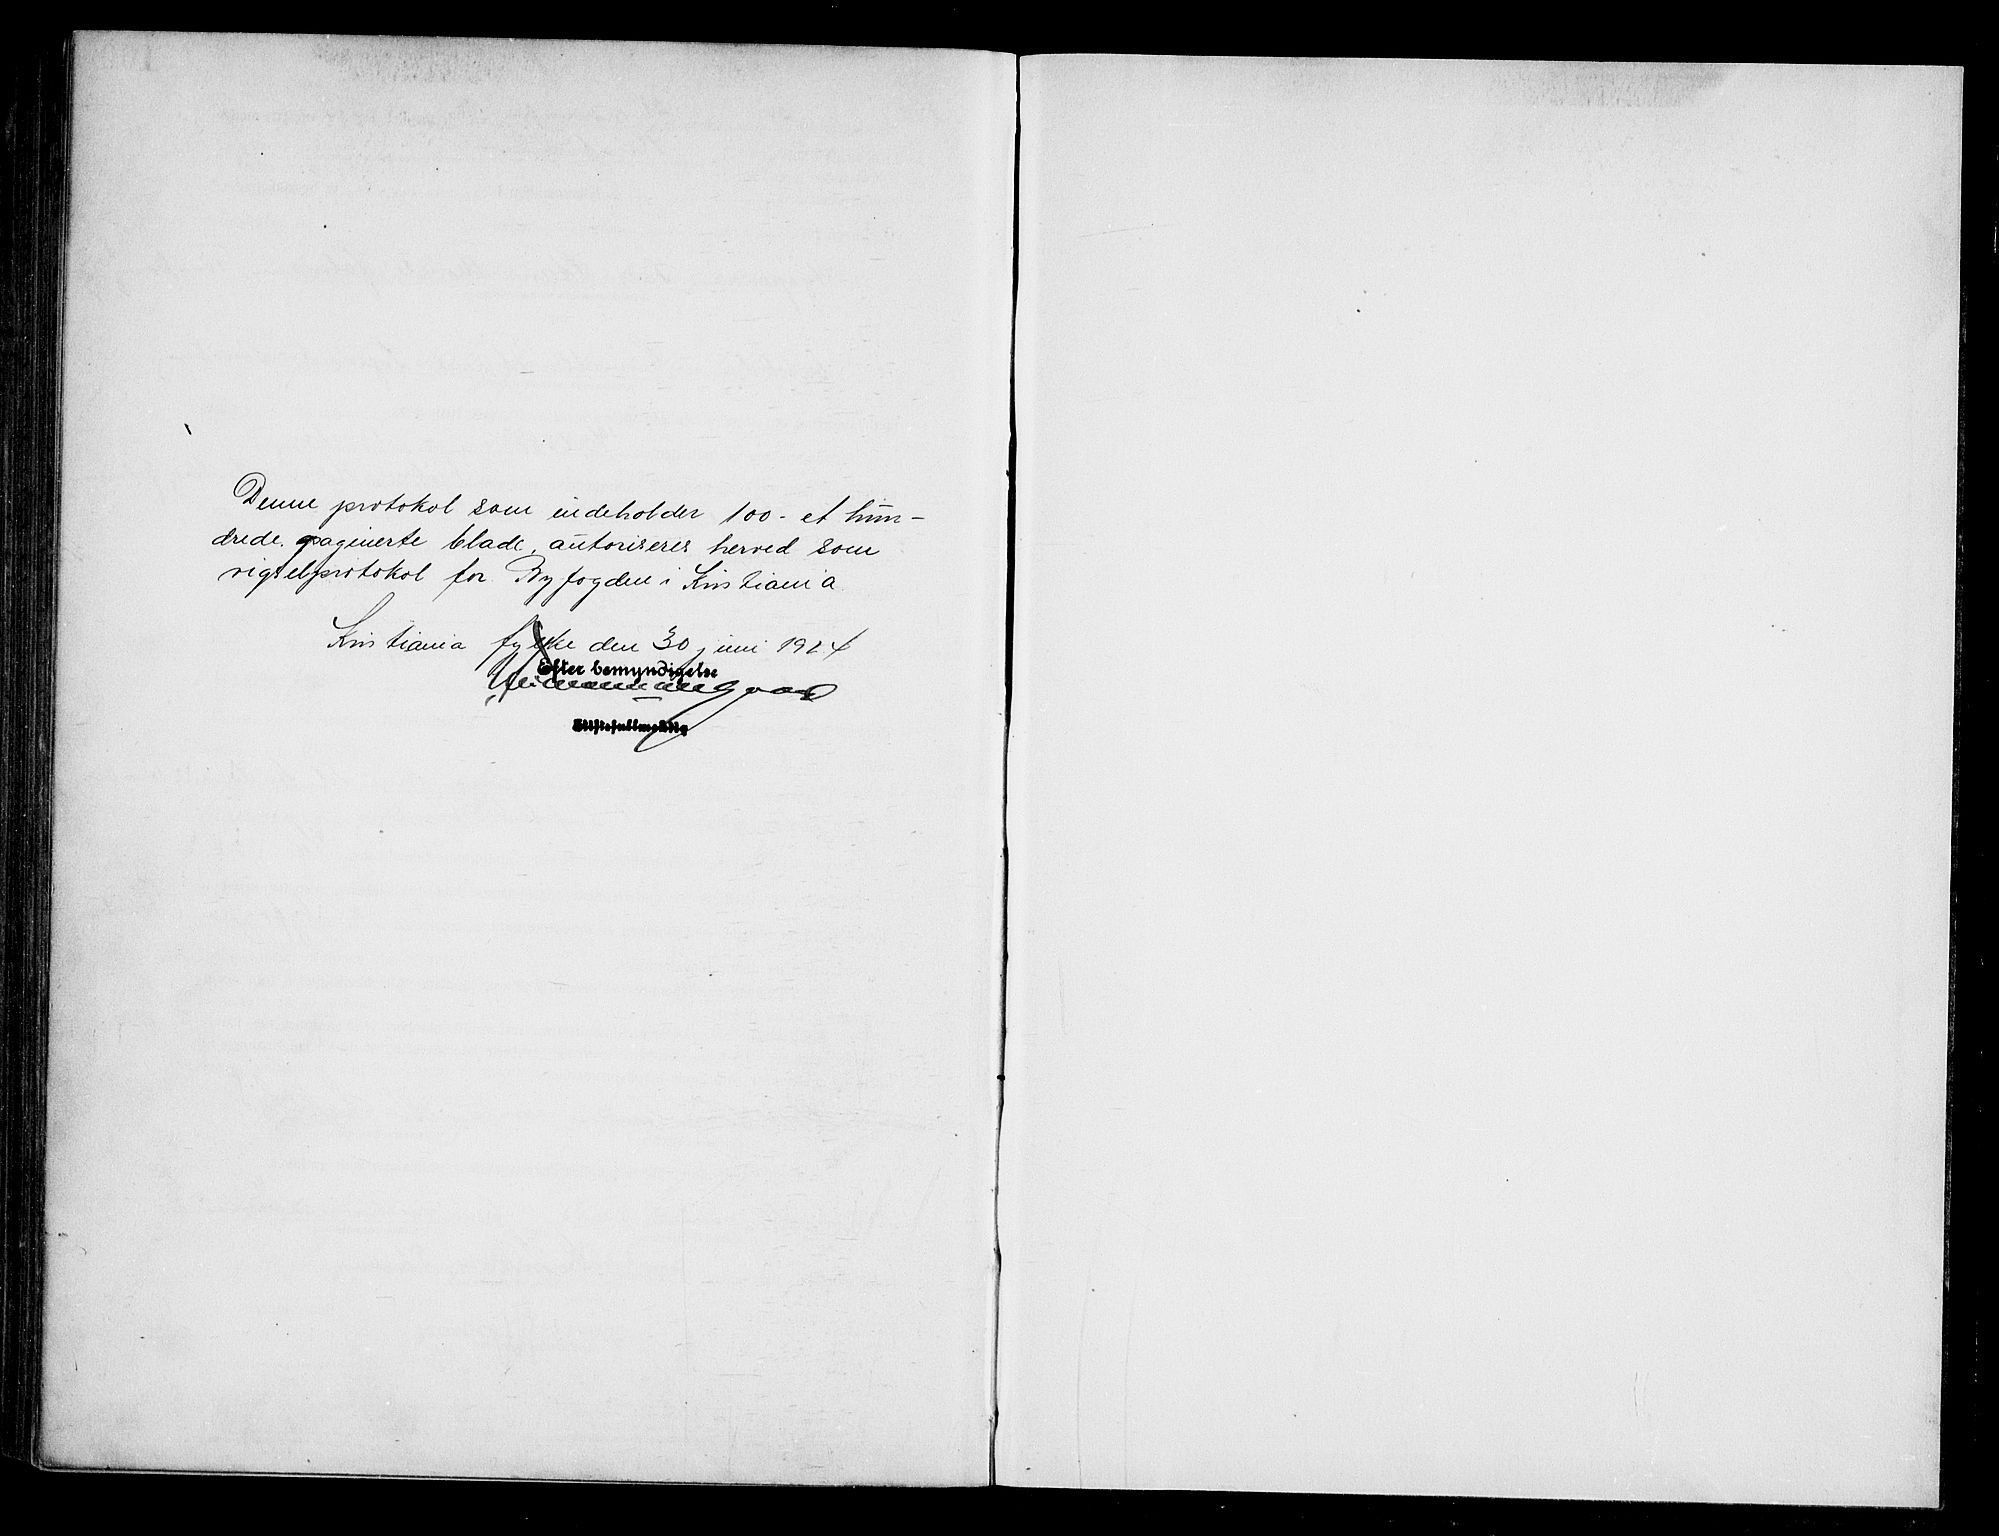 Denne protokol som indeholder 100 - et hun-
drede paginerte blade, autoriseres herved som
vigselprotokol for Byfogden i Kristiania
Kristiania fylke den 30 juni 1924
Efter bemyndigelse
Stiftsfullmektig